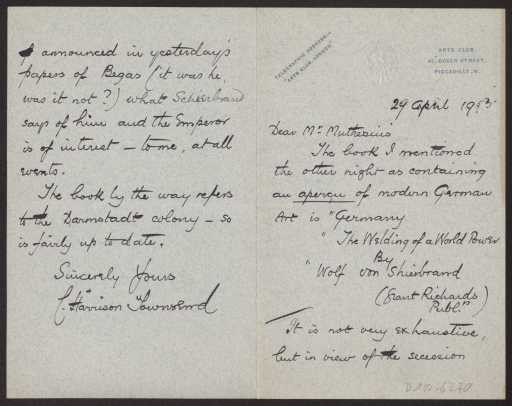 TELEGRAPHIC ADDRESS—
"ARTS CLUB, LONDON."
ARTS CLUB,
40, DOVER STREET,
PICCADILLY, W.
29 April 1903
Dear Mr. Muthesius
The book I mentioned
the other night as containing
an aperçu of modern German
Art is "Germany
" The Welding of a World Power
By
" Wolf von Shierbrand
(Grant Richards)
Publ.rs
It is not very exhaustive,
but in view of the secession
announced in yesterday's
papers of Begas (it was he,
was it not?) what Schierbrand
says of him and the Emperor
is of interest — to me, at all
events.
The book by the way refers
to the Darmstadt colony — so
is fairly up to date.
Sincerely Yours
C. Harrison Townsend